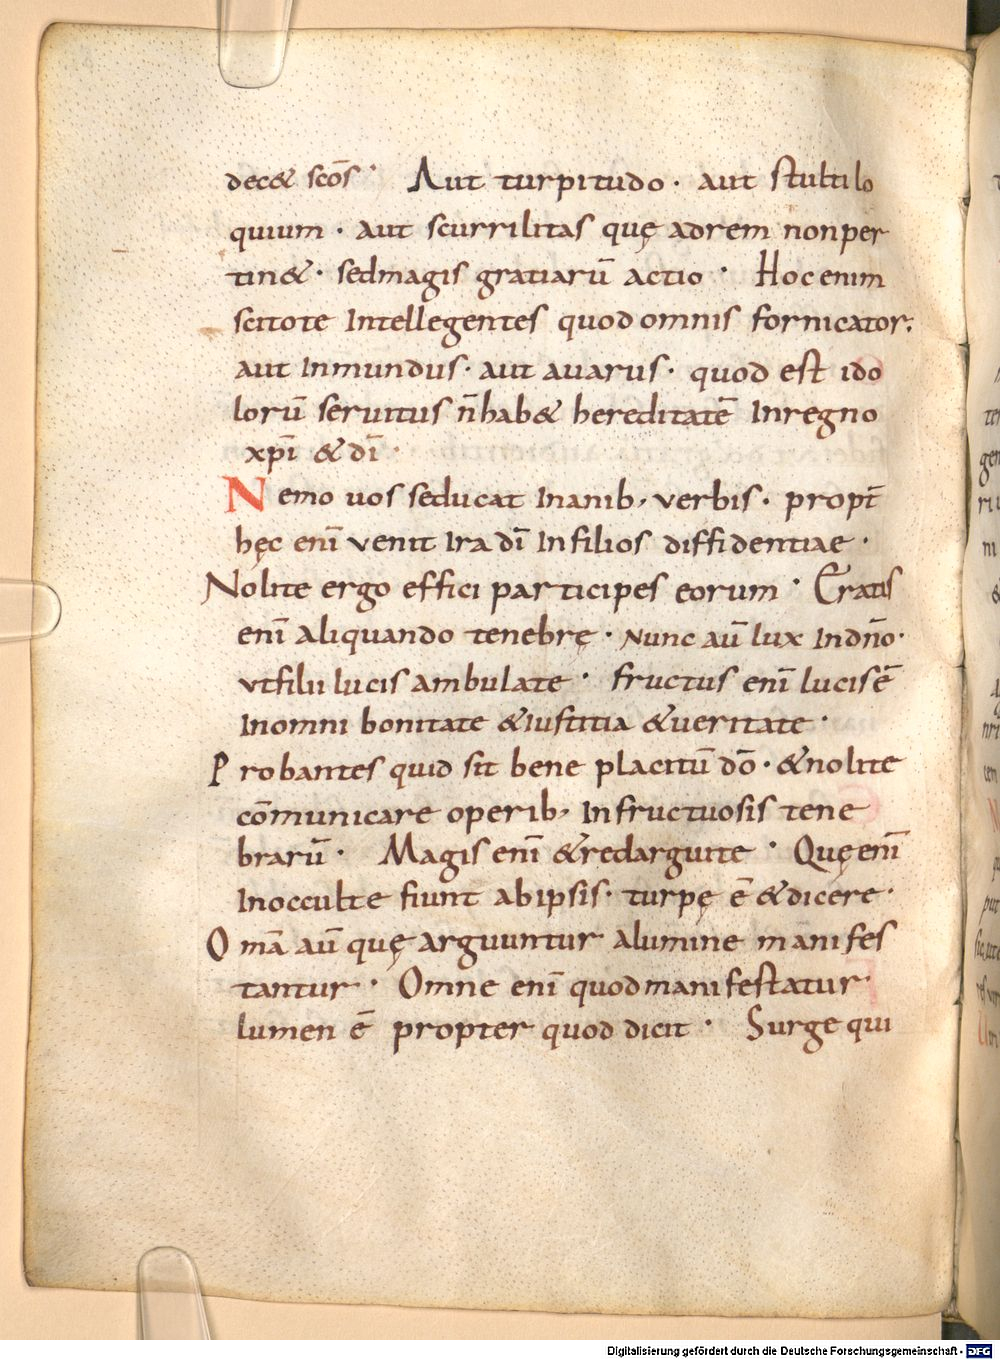 dec& scōs · Aut turpitudo · aut stultilo
quium · aut scurrilitas quę adrem nonper
tin& · sedmagis gratiarū actio · Hoc enim
scitote Intellegentes quod omnis fornicator;
aut Inmundus · aut auarus · quod est ido
lorū seruitus n̄ hab& hereditatē Inregno
xp̄i & dī ·
Nemo uos seducat Inanib; verbis · propt̄
hęc enī venit Ira dī Infilios diffidentiae ·
Nolite ergo effici participes eorum · Eratis
enī aliquando tenebrę · Nunc aū lux Indn̄o ·
vtfilii lucis ambulate · fructus enī lucis ē
Inomni bonitate &iustitia &ueritate ·
Probantes quid sit bene placitū dō · &nolite
cōmunicare operib; Infructuosis tene
brarū · Magis enī &redarguite · Quę enī
Inocculte fiunt abipsis · turpę ē &dicere ·
Omā aū quę arguuntur alumine manifes
tantur · Omne enī quodmanifestatur
lumen ē propter quod dicit · Surge qui
Digitalisierung gefördert durch die Deutsche Forschungsgemeinschaft - DFG